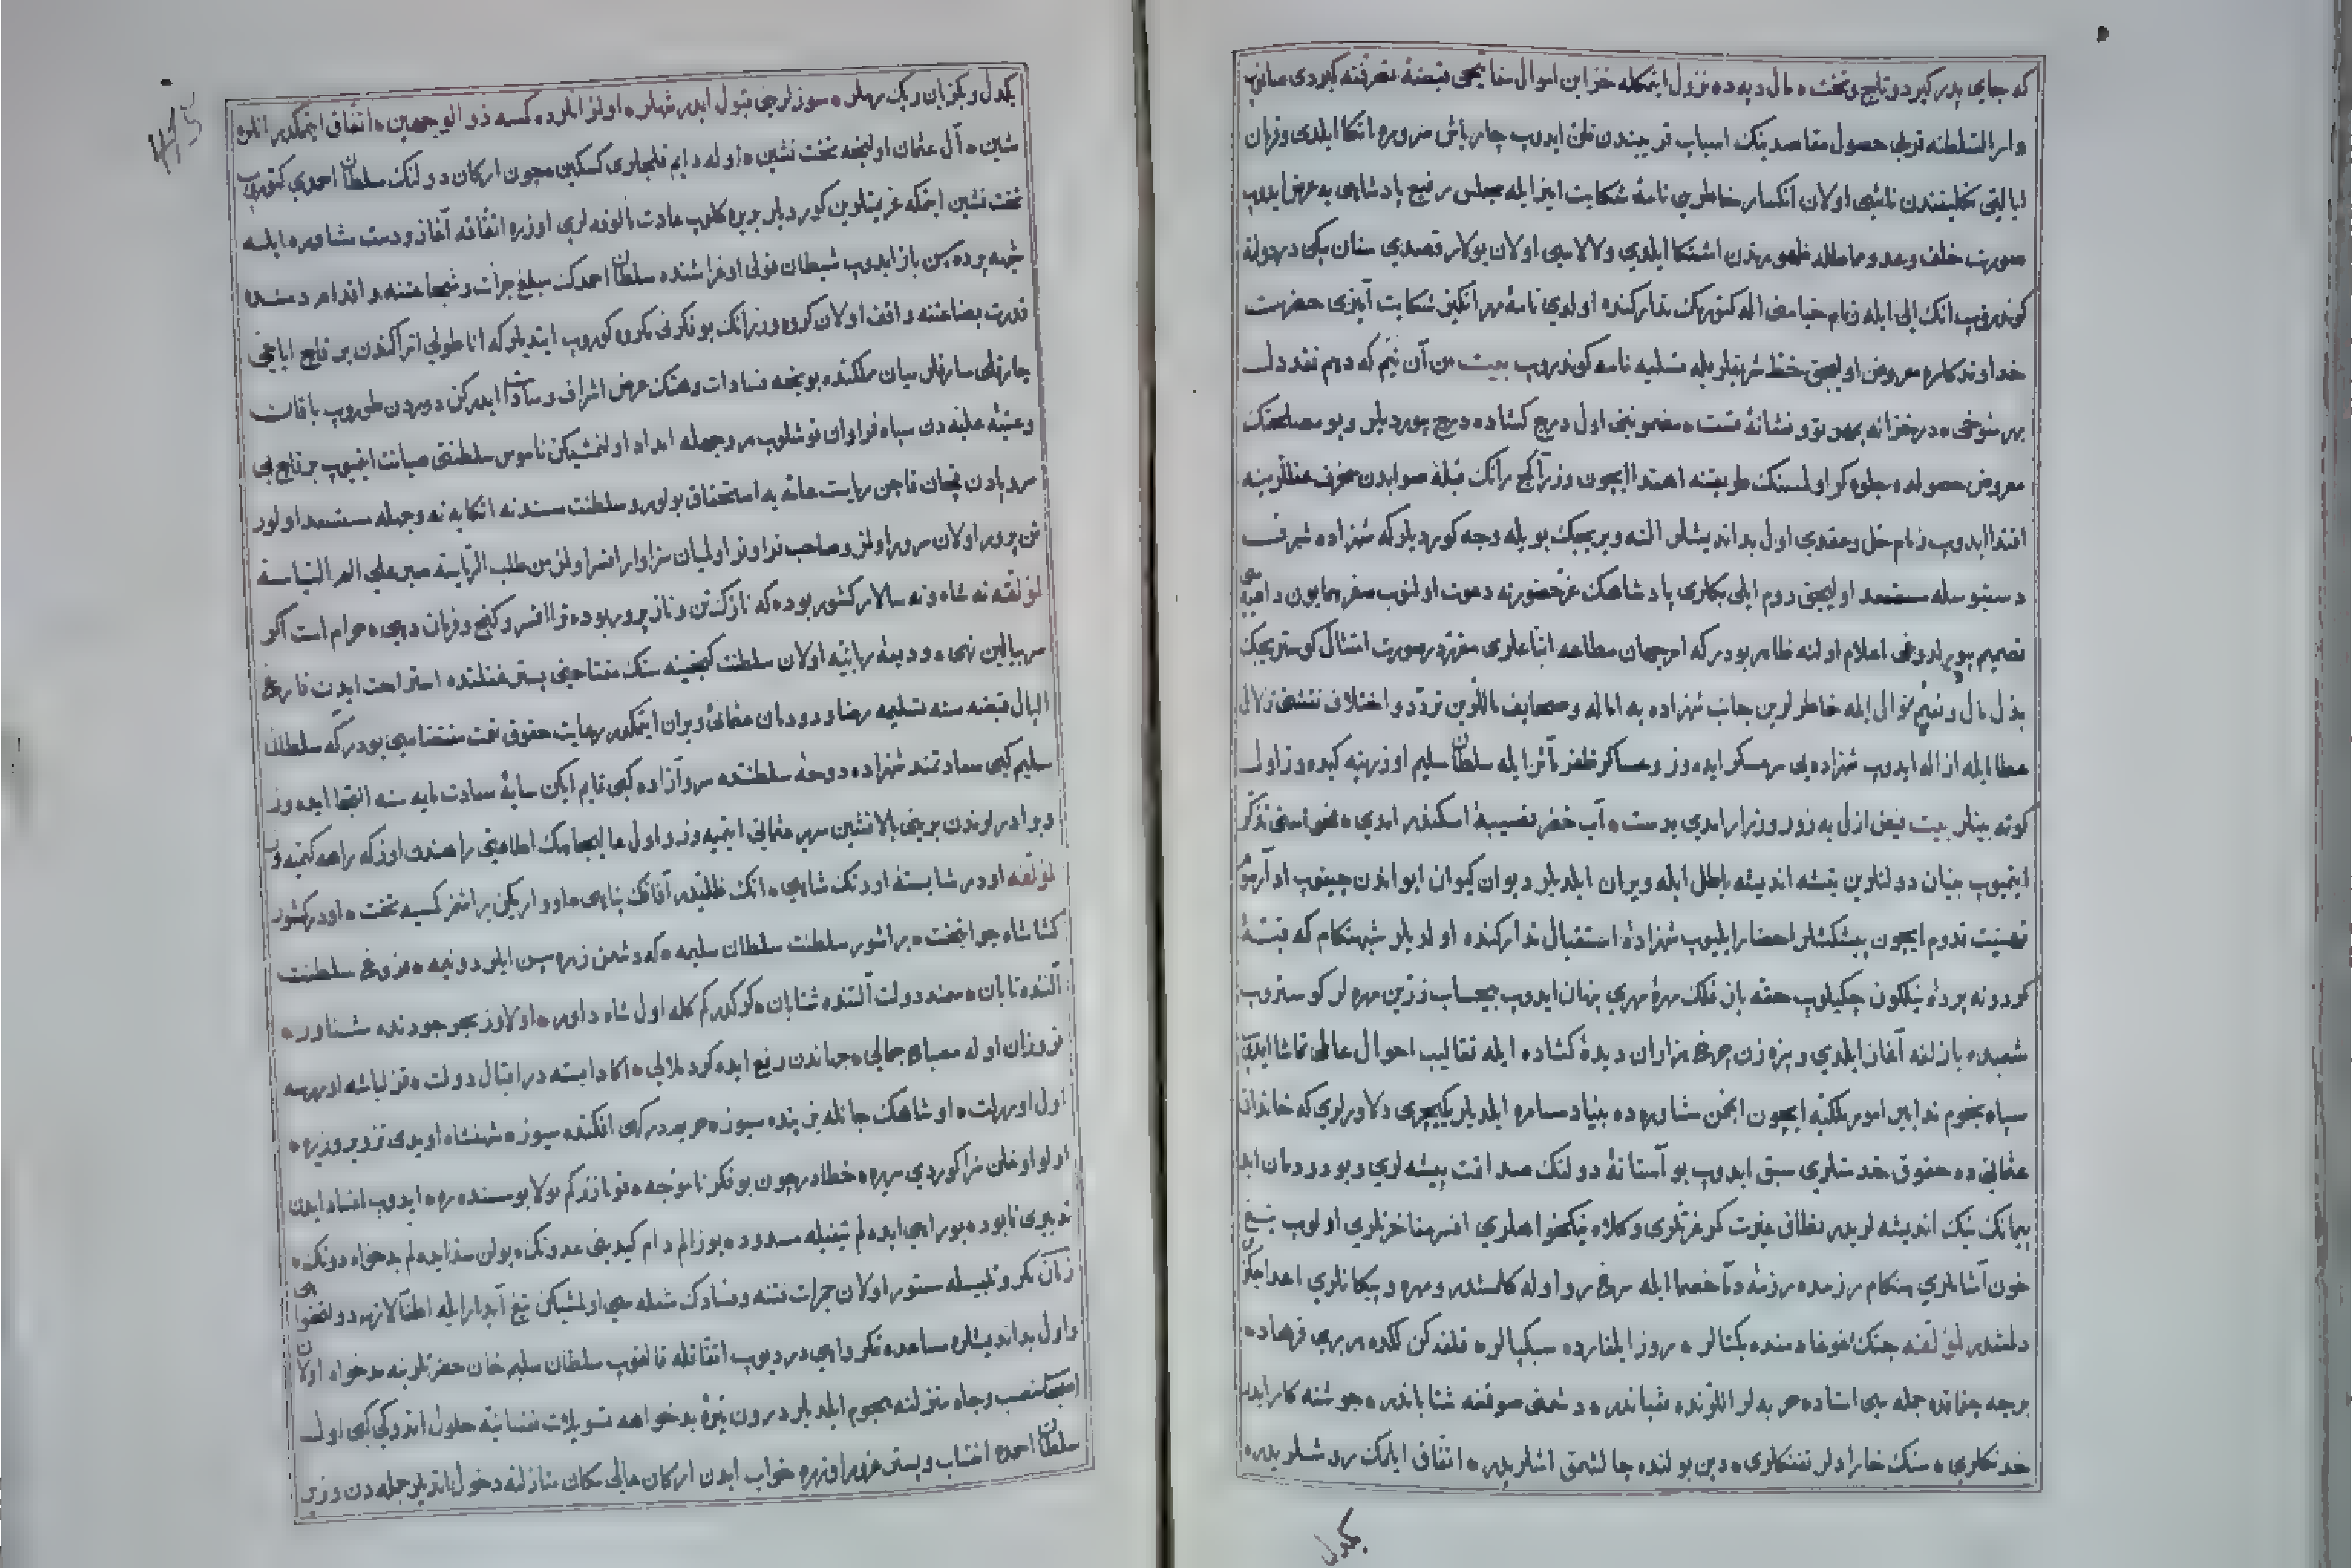 که جای پدر کیرد و تاج و تخت ٥ مال دیه ده نزول ایتمکله خزاین اموال مفاتیحی قبضهٔ تصرفنه کیردی صانوب
دار السلطنه قربی حصول مقاصدینک اسباب قریبندن ظن ایدوب چار باش سروره اتکا ایلدی و قرمان
ایالتی تکلیفندن ناشی اولان انکسار خاطرین نامهٔ شکایت امیز ایله مجلس رفیع پادشاهی یه عرض ایدوب
صورت خلف وعد و مماطله ظهورندن اشتکا ایلدی ولالاسی اولان یولار قصدی سنان بیکی در دولته
کوندروب انک الی ایله زمام خیامی اله کتورمک تدارکنده اولدی نامهٔ مهر انکیز شکایت آمیزی حضرت
خداوندکاره معروض اولیجق خط شریفلریله تسلیه نامه کوندروب بیت من آن نیم که دهم نقد دل
بهر شوخی ٥ در خزانه بمهر تو و نشانهٔ تست ٥ مضمونینی اول درج کشاده درج بیوردیلر و بو مصلحتک
معروض حصولده جلوه کر اولمسنک طریقنه اهتدا ایچون وزرا کج رانک قبلهٔ صوابدن منحرف عقللرینه
اقتدا ایدوب زمام حل و عقدی اول بد اندیشلر النه ویریجک بویله وجه کوردیلر که شهزاده شرف
دستبوسله مستسعد اولیجق روم ایلی بکلری پادشاهک عز حضورنه دعوت اولنوب سفر همایون داعیه سی
تصمیم بیورلدوغی اعلام اولنه ظاهر بودر که امر جهان مطاعه اتباعلری مقرردر صورت امتثال کوستریجک
بذل مال و نعیم نوال ایله خاطرلرین جانب شهزاده یه اماله و صحایف باللرین تردد و اختلاف نقشی زلال
عطا ایله ازاله ایدوب شهزاده یی سرعسکر ایده وز و عساکر ظفر مآثر ایله سلطان سلیم اوزرینه کیده وز اول
کوته بینلر بیت فیض ازل به زور و زر ار آمدی بدست ٥ آب خضر نصیبهٔ اسکندر امدی ٥ فحواسنی تذکر
ایتمیوب بنیان دولتلرین تیشه اندیشه باطل ایله ویران ایلدیلر دیوان کیوان ایواندن چیقوب
تهنیت قدوم ایچون پیشکشلر احضار ایلیوب شهزادهٔ استقبال تدارکنده اولدیلر شبهنکام که قبهٔ
کردونه پردهٔ نیلکون چکیلوب حقه باز فلک مهرهٔ مهری پنهان ایدوب بیحساب زرین مهره لر کوستروب
شعبده بازلغه آغاز ایلدی و پیره زن چرخ هزاران دیدهٔ کشاده ایله تقالیب احوال عالمی تماشا ایلدی
سپاه نجوم تدابیر امور ملکیه ایچون انجمن مشاوره ده بنیاد مسامره ایلدیلر یکیچری دلاورلری که خاندان
عثمانی ده حقوق خدمتلری سبق ایدوب بو آستانهٔ دولتک صداقت پیشه لری و بو دودمان ابد
پیمانک نیک اندیشه لریدر نطاق غیرت کمر عزتلری و کلاه نیکخواهلری افسر مفاخرتلری اولوب تیغ
خون آشاملری هنکام رزمده رزمه دماء خصما ایله سرخ رو اوله کلمشدر و مهره و پیکانلری اعدا جکرن
دلمشدر لمؤلفه جنک غوغا دمنده یکتالر ٥ روز ایلغارده سبکپالر ٥ قلعه کن لکده هر بری فرهاد ٥
برجه جقماقده جمله سی استاد ٥ حربه لر اللرنده شبانندر ٥ دشمنی صوقغه شتابانندر ٥ جوشنه کار ایدر
خدنکلری ٥ سنک خارا دلر تفنکلری ٥ دین یولنده چالشمق اشلریدر ٥ اتفاق ایلمک روشلریدر ٥
یکدل
یکدل و یکزبان و یک رهلر ٥ سوزلرینی قبول ایدر شهلر ٥ اولمز انلرده کمسه ذو الوجهین ٥ اتفاق ایتمکدر انلره
شین ٥ آل عثمان اولیجغه تخت نشین ٥ اوله دایم قلیجلری کسکین ٥ چون ارکان دولتک سلطان احمدی کتوروب
تخت نشین ایتمکه عزیمتلرین کوردیلر بر یره کلوب عادت مألوفه لری اوزره اتفاقه آغاز و دست مشاوره ایله
شهنه پرده سن باز ایدوب شیطان قولی اوغراشنده سلطان احمدک مبلغ جرأت و شجاعتنه و اقدام دمنده
قدرت بضاعتنه واقف اولان کروه وزرانک بو فکرنی مکروه کوروب ایتدیلر که اناطولی اتراکندن بر قاچ ایاغی
چارقلی سارقلر میان مملکتده بو نجه فسادات و هتک عرض اشراف و سادات ایدرکن دوردن طوروب باقات
و عتبهٔ علیه دن سپاه فراوان قوشلوب هر وجهله امداد اولنمشیکن ناموس سلطنتی صیانت ایتمیوب بر قاچ بی
سر و پادن قچان قاچن رعایت عامه یه استحقاق بولور و سلطنت مسندنه اتکایه نه وجهله مستعد اولور
تن پرور اولان سرور اولمز و صاحب فراوفر اولمیان سزاوار افسر اولمز من طلب الریاسة صبر علی الم السیاسة
لمؤلفه نه شاه و نه سالار کشور بود ٥ که نازک تن و ناز پرور بود ٥ ترا افسر و کنج و فرمان دهی ٥ حرام است اکر
سر ببالین نهی ٥ ودیعهٔ ربانیه اولان سلطنت کنجینه سنک مفتاحنی بستر غفلتده استراحت ایدن فارغ
البال قبضه سنه تسلیمه رضا و دودمان عثمانیٔ ویران ایتمکدر رعایت حقوق نعمت مقتضاسی بودر که سلطان
سلیم کبی سعادتمند شهزاده دوحهٔ سلطنتده سرو آزاده کبی قایم ایکن سایهٔ سعادت مایه سنه التجا ایده وز
و برادرلرندن برینی بالانشین سریر عثمانی ایتمیه وز و اول عالیجنابک اطاعتی راهندن اوزکه راهه کتمیه وز
لمؤلفه اودر شایستهٔ اورنک شاهی ٥ انک ظلیدر آفاقک پناهی ٥ او وار یکن یراشمز کسیه تخت ٥ اودر کشور
کشا شاه جوانبخت ٥ یراشور سلطنت سلطان سلیمه ٥ که دشمن زهره سن ایلر دونیمه ٥ فروغ سلطنت
آلننده تابان ٥ سمند دولت آلتنده شتابان ٥ کرکدر کم کله اول شاه داور ٥ اولاوز بحر جودنده شناور ٥
فروزان اوله مصباح جمالی ٥ جهاندن رفع ایده کرد ملالی ٥ اکا دابسته در اقبال دولت ٥ قزلباشه اوررسه
اول اورر لت ٥ او شاهک جانله بز بنده سیوز ٥ حریم درکهی افکنده سیوز ٥ شهنشاه اویدی تزویر وزیره ٥
اولو اوغلن سزا کوردی سریره ٥ خطادر چون بو فکر ناموجه ٥ قونازز کم بولا بو سمنده ره ٥ ایدوب افساد ایدن
تدبیری نابود ٥ بو راهی ایده لم تیغیله مسدود ٥ بوزالم دام کیدینی عدونک ٥ بولن سفرایده لم بدخواه دونک ٥
زمان مکر و تلبیسله مستور اولان جمرات فتنه و فسادک شعله سی اولمشیکن تیغ آبدار ایله اطفا لازمدر دولتخواهی
و اول بد اندیشلره مساعده فکر واهی در دیوب اتفاقله قالقوب سلطان سلیم خان حضرتلرینه بدخواه اولان
اصحاب منصب و جاه منزلنه هجوم ایلدیلر درون تیرهٔ بدخواهه تسویلات نفسانیه حلول اتدوکی کبی اول
سلطان احمده انتساب و بستر غرور اوزره خواب ایدن ارکان عالی مکان منازلنه دخول اتدیلر جمله دن وزیر